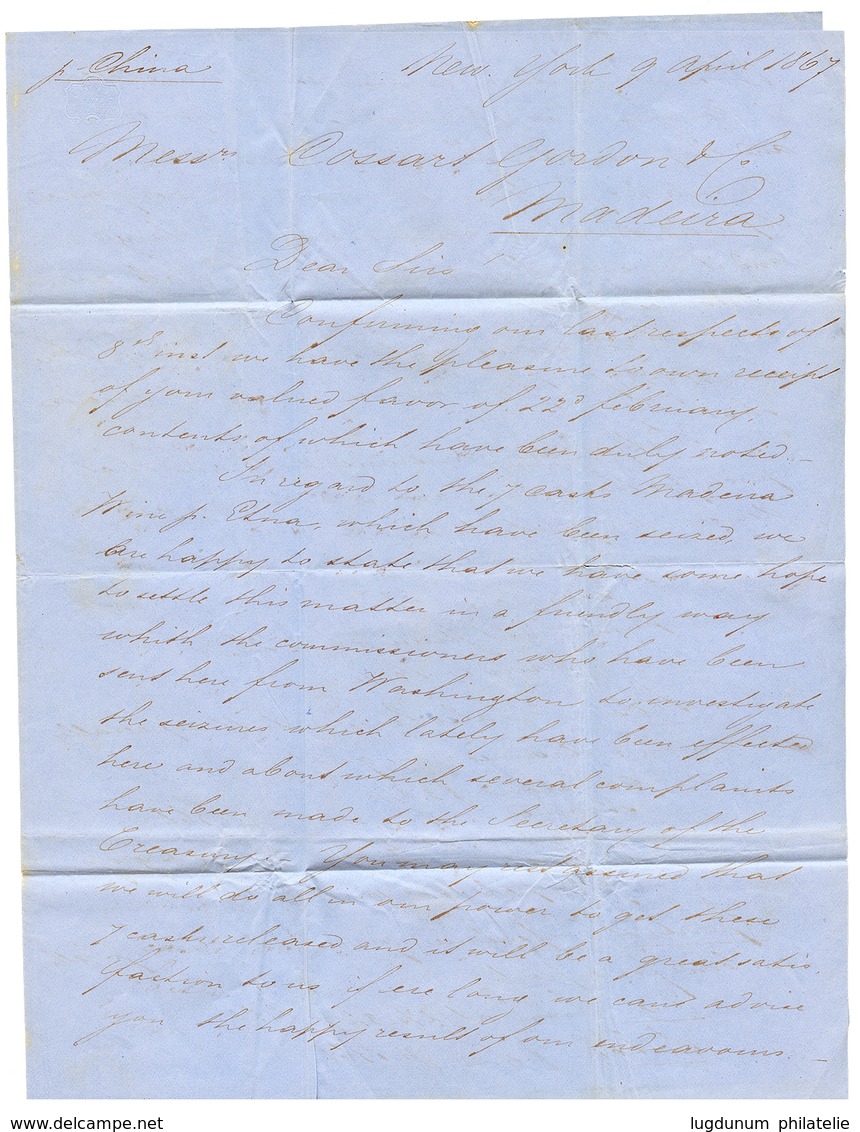 p. China
New. York 9 April 1867
Messrs Cossart Gordon & Co.
Madeira
Dear Sirs!
Confirming our last respects of
8th inst we have the pleasure to own receipt
of your valued favor of 22d February,
contents of which have been duly noted. –
In regard to the 7 casks Madeira
Wine p. Etna, which have been seized, we
are happy to state that we have some hope
to settle this matter in a friendly way
whith the commissioners who have been
sent here from Washington to investigate
the seizures which lately have been effected
here and about which several complaints
have been made to the Secretary of the
Treasury. – You may rest assured that
we will do all in our power to get these
7 casks released and it will be a great satis.
faction to us if ere long we can advise
you the happy result of our endeavours. –
www.delcampe.net
lugdunum philatelie